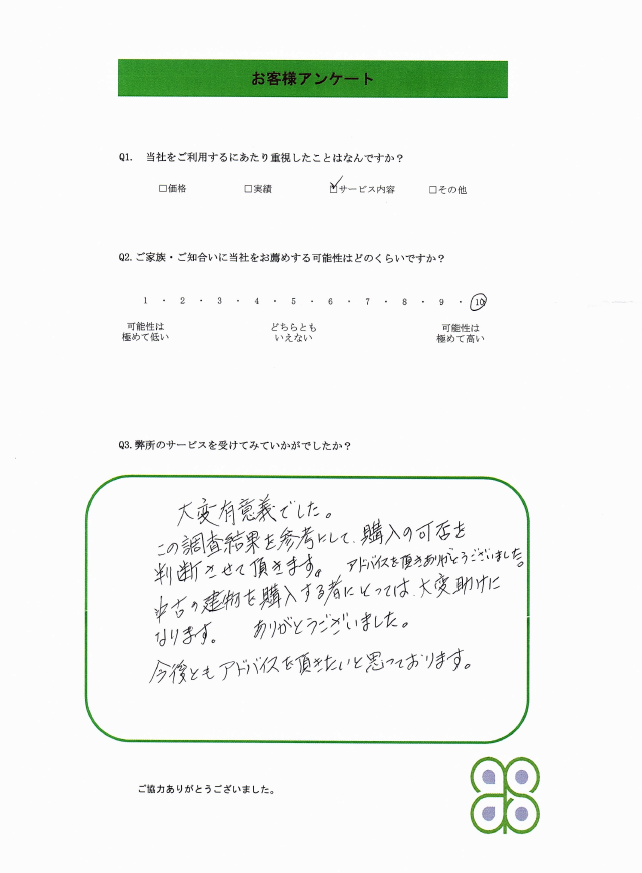 お客様アンケート
Q1. 当社をご利用するにあたり重視したことはなんですか？
□価格 □実績 ☑サービス内容 □その他
Q2.ご家族・ご知合いに当社をお薦めする可能性はどのくらいですか？
1 ・ 2 ・ 3 ・ 4 ・ 5 ・ 6 ・ 7 ・ 8 ・ 9 ・ 10
可能性は どちらとも 可能性は
極めて低い いえない 極めて高い
Q3.弊所のサービスを受けてみていかがでしたか？
大変有意義でした。
この調査結果を参考にして、購入の可否を
判断させて頂きます。 アドバイスを頂きありがとうございました。
中古の建物を購入する者にとっては、大変助けに
なります。 ありがとうございました。
今後ともアドバイスを頂きたいと思っております。
ご協力ありがとうございました。